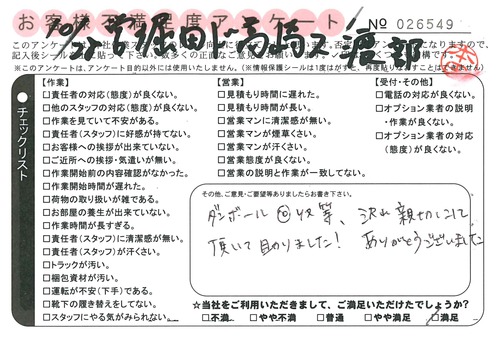 お客様不満足度アンケート
No 026549
このアンケートは
※このアンケートは、アンケート目的以外には使用いたしません。(※情報保護シールは1度はがすと、再度貼りなおすことはできません)
チェックリスト
【作業】
□責任者の対応(態度)が良くない。
□他のスタッフの対応(態度)が良くない。
□作業を見ていて不安がある。
□責任者(スタッフ)に好感が持てない。
□お客様への挨拶が出来ていない。
□ご近所への挨拶・気遣いが無い。
□作業開始前の内容確認がなかった。
□作業開始時間が遅れた。
□荷物の取り扱いが雑である。
□お部屋の養生が出来ていない。
□作業時間が長すぎる。
□責任者(スタッフ)に清潔感が無い。
□責任者(スタッフ)が汗くさい。
□トラックが汚い。
□梱包資材が汚い。
□運転が不安(下手)である。
□靴下の履き替えをしてない。
□スタッフにやる気がみられない。
【営業】
□見積もり時間に遅れた。
□見積もり時間が長い。
□営業マンに清潔感が無い。
□営業マンが煙草くさい。
□営業マンが汗くさい。
□営業態度が良くない。
□営業の説明と作業が一致してない。
【受付・その他】
□電話の対応が良くない。
□オプション業者の説明・作業が良くない。
□オプション業者の対応(態度)が良くない。
その他、ご意見・ご要望等ありましたらお書き下さい。
ダンボール回収等、沢山親切にして
頂いて助りました! ありがとうございました
☆当社をご利用いただきまして、ご満足いただけたでしょうか?
□不満 □やや不満 □普通 □やや満足 □満足